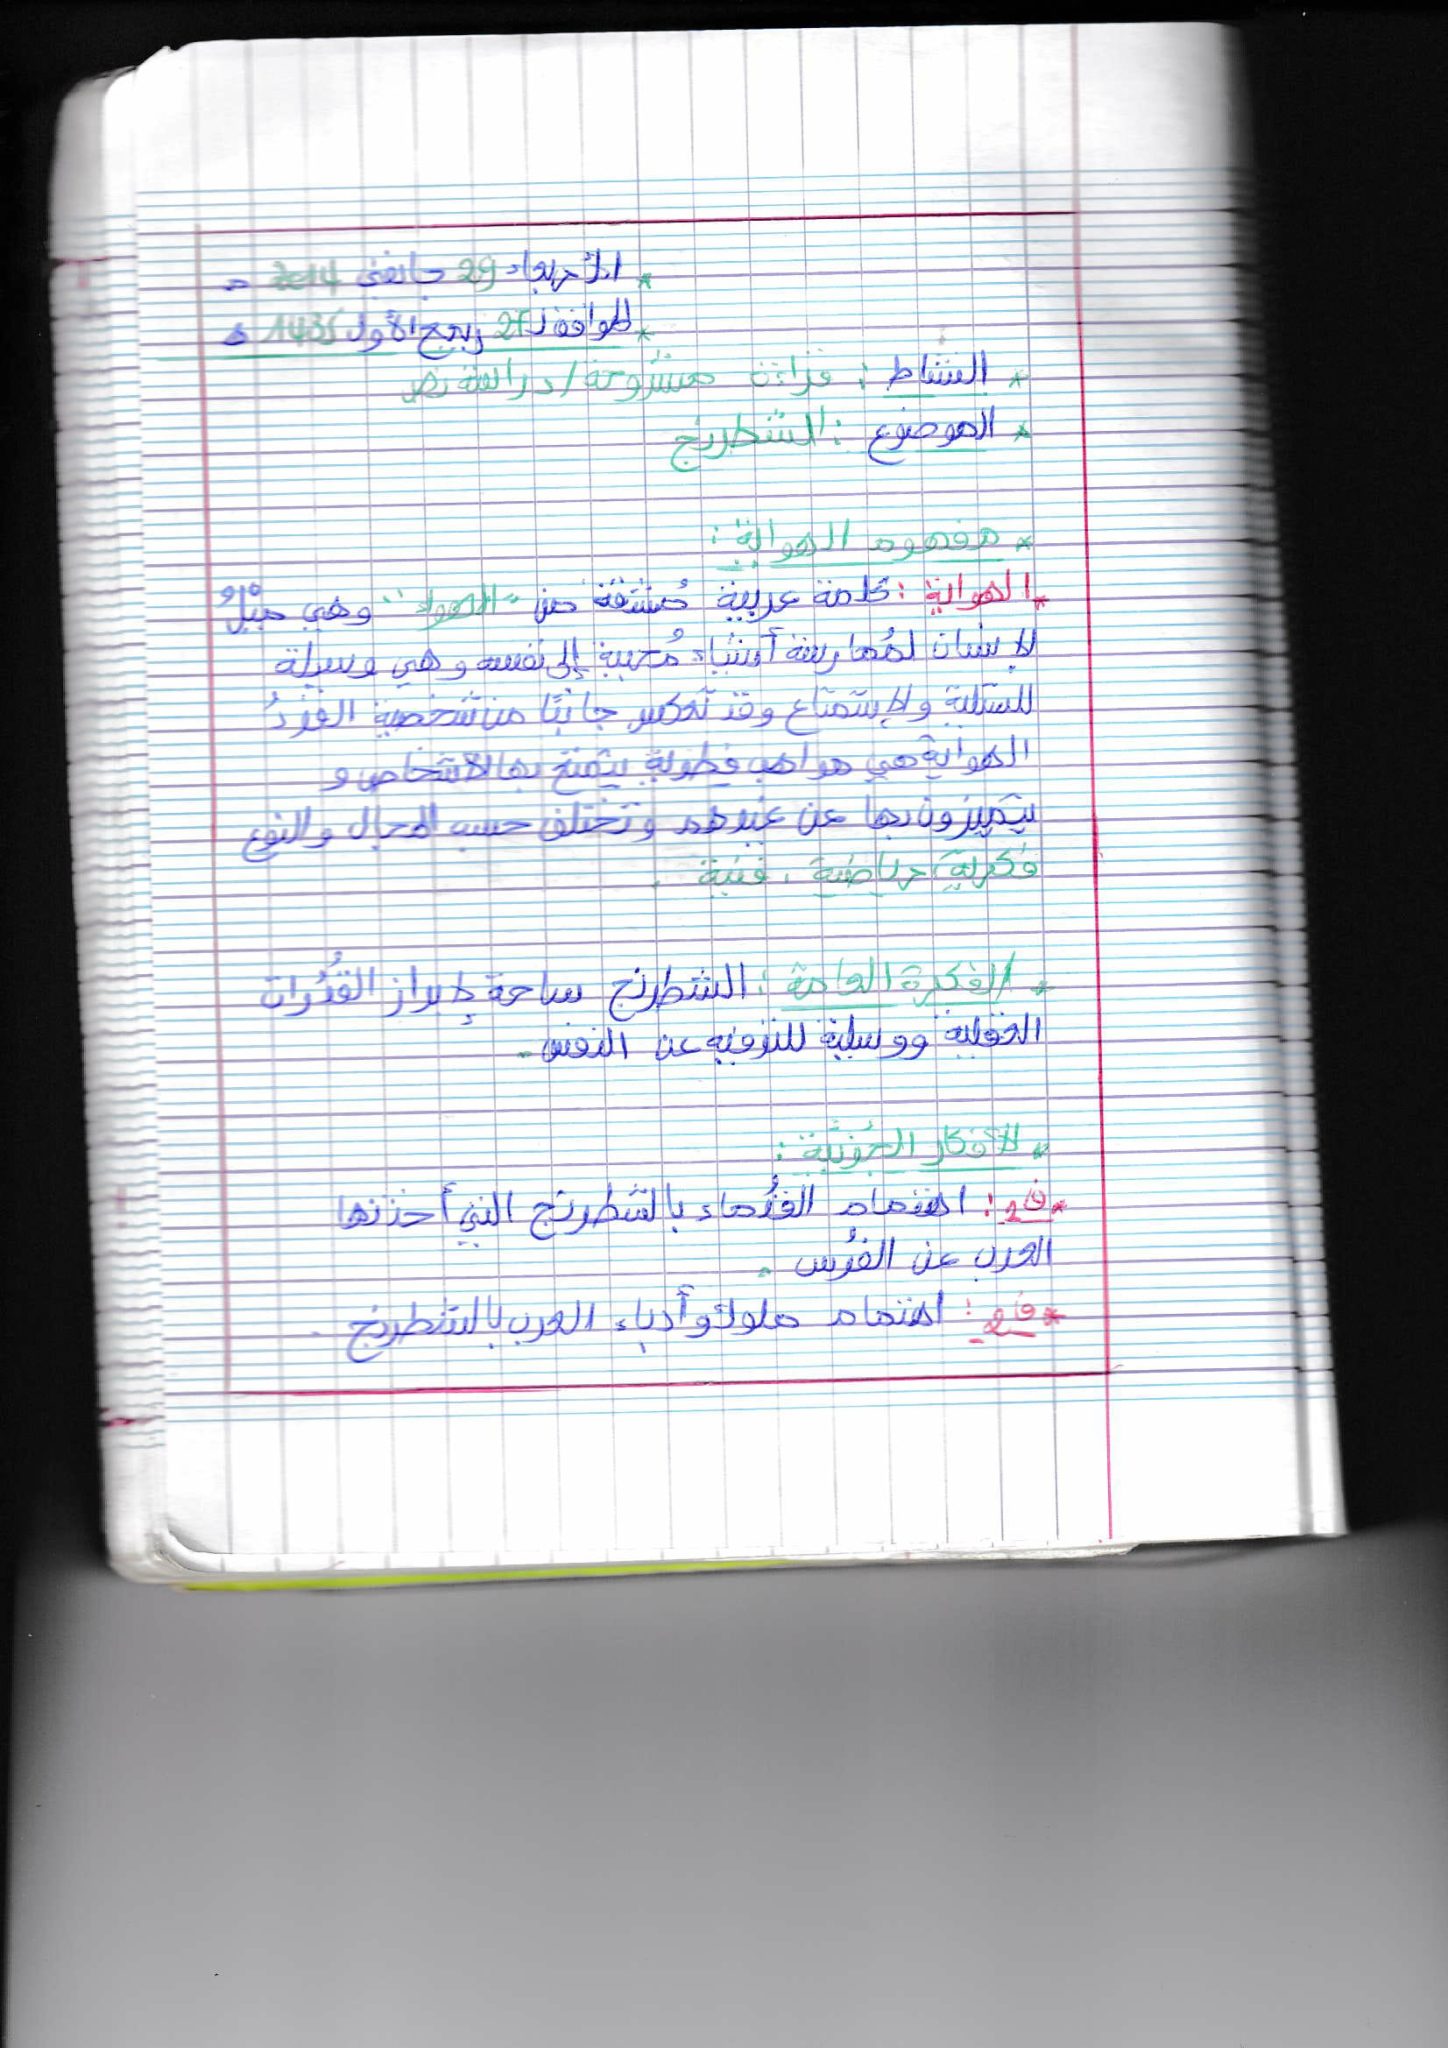 * الأربعاء 29 جانفي 2014 م
* الموافق لـ 27 ربيع الأول 1435 هـ
* النشاط : قراءة مشروحة / دراسة نص
* الموضوع : الشطرنج
* مفهوم الهواية :
* الهواية : كلمة عربية مُشتقة من "الهواء" وهي ميْلُ
الإنسان لمُمارسة أشياء مُحببة إلى نفسه وهي وسيلة
للتسلية والإستمتاع وقد تعكس جانبًا من شخصية الفرد
الهواية هي مواهب فطرية يتمتع بها الأشخاص و
يتميزون بها عن غيرهم وتختلف حسب المجال والنوع
فكرية، رياضية، فنية .
* الفكرة العامة : الشطرنج ساحة لإبراز القدُرات
العقلية ووسيلة للترفيه عن النفس .
* الأفكار الجُزئية :
* ف1 : اهتمام القدُماء بالشطرنج التي أخذتها
العرب عن الفُرس .
* ف2 : اهتمام ملوك وأدباء العرب بالشطرنج .